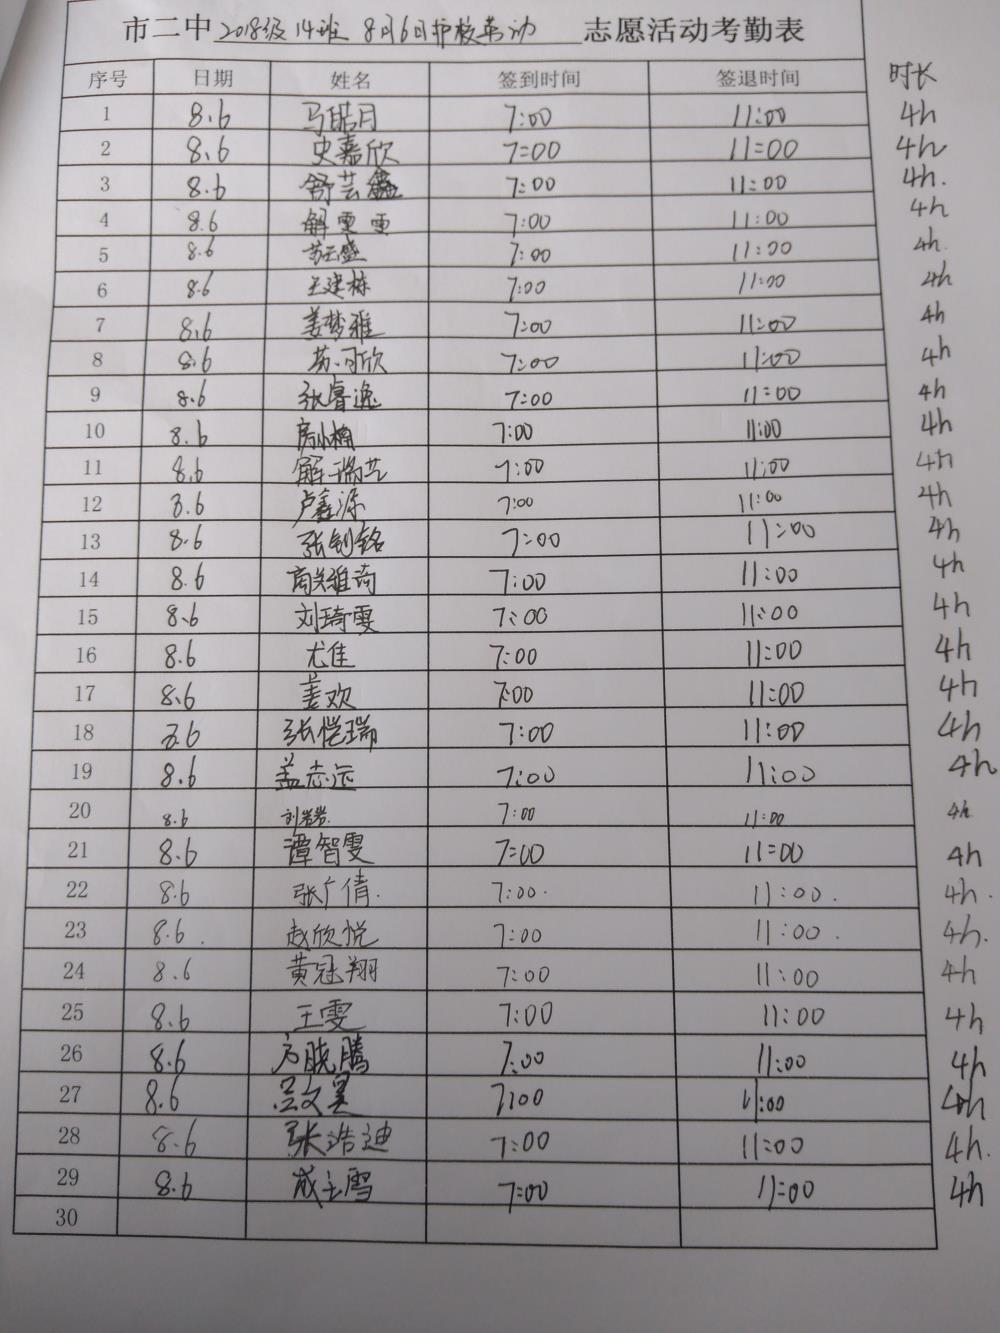 市二中 2018级14班 8月6日护校劳动 志愿活动考勤表
序号 日期 姓名 签到时间 签退时间 时长
1 8.6 马皓月 7:00 11:00 4h
2 8.6 史嘉欣 7:00 11:00 4h
3 8.6 舒芸鑫 7:00 11:00 4h.
4 8.6 解雯雯 7:00 11:00 4h
5 8.6 7:00 11:00 4h.
6 8.6 王建栋 7:00 11:00 4h
7 8.6 姜梦雅 7:00 11:00 4h
8 8.6 苏可欣 7:00 11:00 4h
9 8.6 张睿逸 7:00 11:00 4h
10 8.6 房小楠 7:00 11:00 4h
11 8.6 解瑞芝 7:00 11:00 4h
12 8.6 卢鑫源 7:00 11:00 4h
13 8.6 张钊铭 7:00 11:00 4h
14 8.6 7:00 11:00 4h
15 8.6 刘琦雯 7:00 11:00 4h
16 8.6 尤佳 7:00 11:00 4h
17 8.6 姜欢 7:00 11:00 4h
18 8.6 张恺瑞 7:00 11:00 4h
19 8.6 盖志远 7:00 11:00 4h
20 8.6 7:00 11:00 4h
21 8.6 谭智雯 7:00 11:00 4h
22 8.6 张广倩. 7:00. 11:00. 4h.
23 8.6. 赵欣悦 7:00 11:00. 4h.
24 8.6 黄冠翔 7:00 11:00 4h
25 8.6 王雯 7:00 11:00 4h
26 8.6 方晓腾 7:00 11:00 4h
27 8.6 吕文昊 7:00 11:00 4h
28 8.6 张浩迪 7:00 11:00 4h.
29 8.6 7:00 11:00 4h
30